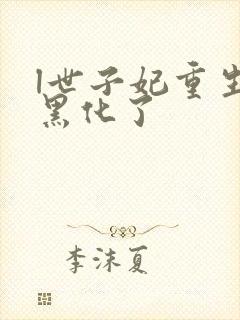 l世子妃重生
黑化了
李沫夏